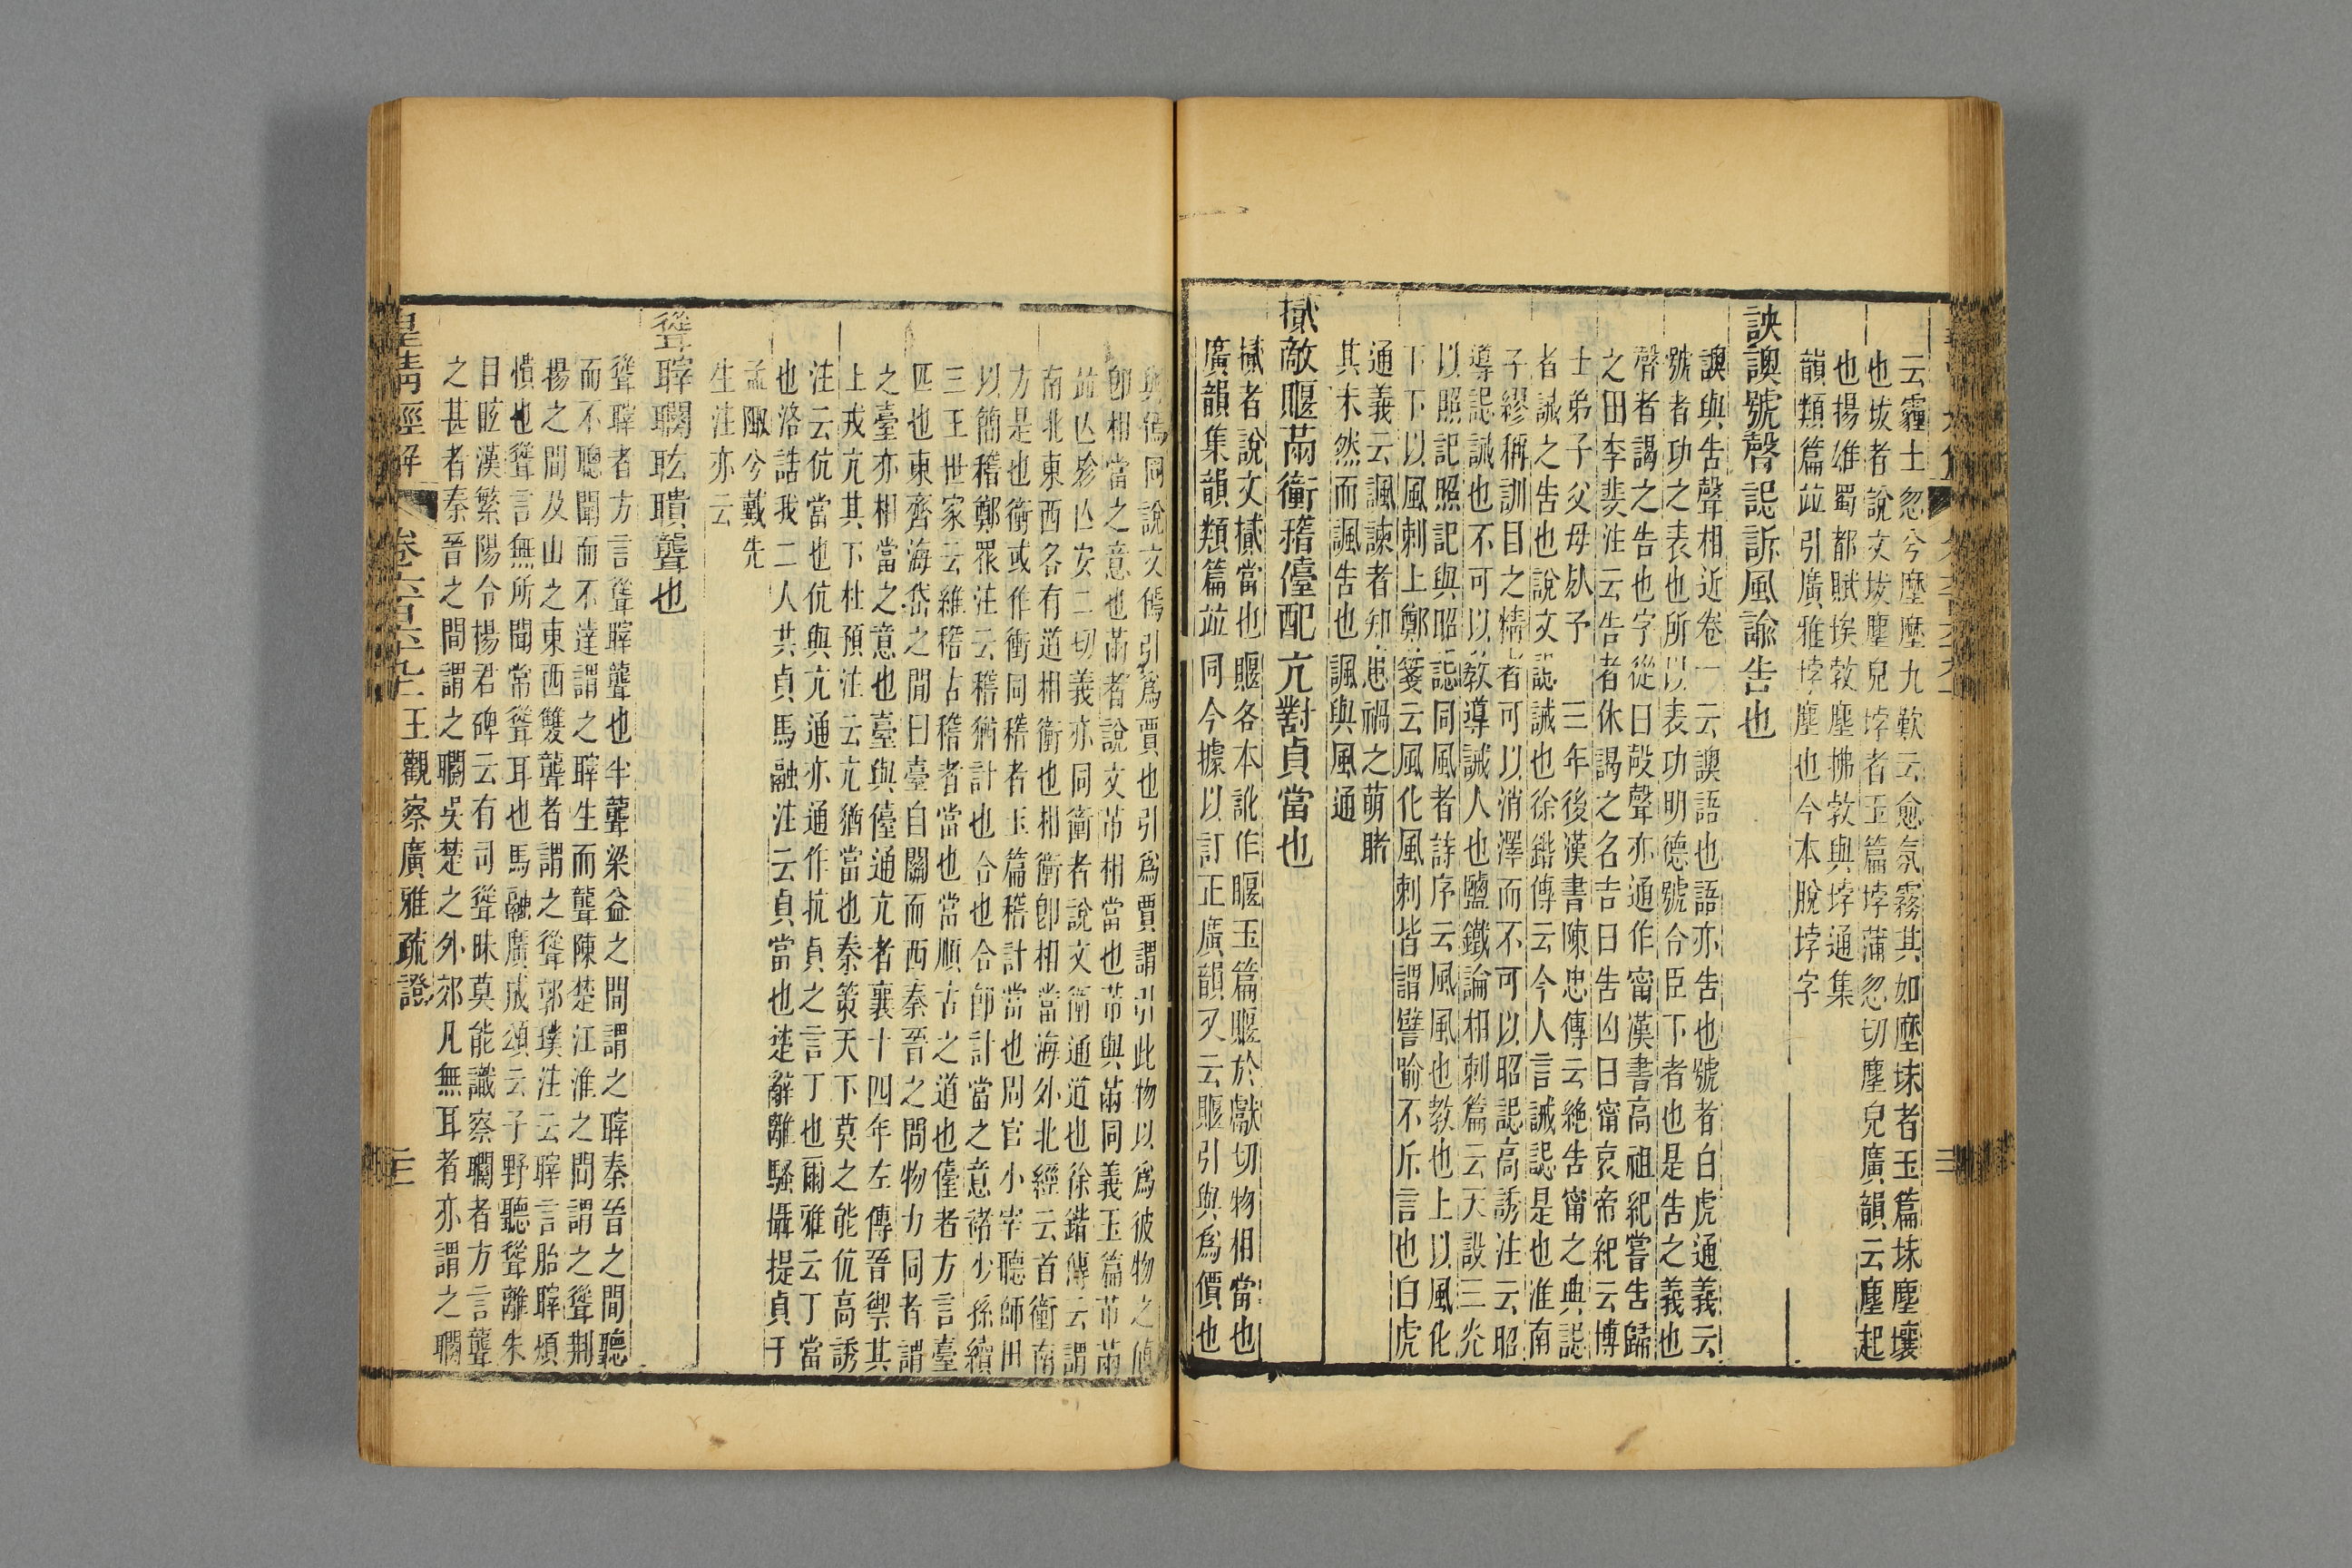 云霾土忽兮塺塺九歎云愈氛霧其如塺埃者玉篇埃塵壤
也坺者說文坺塵皃埻者玉篇埻蒲忽切塵皃廣韻云塵起
也揚雄蜀都賦埃敦塵拂敦與埻通集
韻類篇竝引廣雅埻塵也今本脫埻字
詇諛號謦誋訴風諭告也
諛與告聲相近卷一云諛語也語亦告也號者白虎通義云
號者功之表也所以表功明德號令臣下者也是告之義也
謦者謁之告也字從曰殸聲亦通作甯漢書高祖紀嘗告歸
之田李斐注云告者休謁之名吉曰告凶曰甯哀帝紀云博
士弟子父母死予三年後漢書陳忠傳云絶告甯之典誋
者誡之告也說文誋誡也徐鍇傳云今人言誡誋是也淮南
子繆稱訓目之精者可以消澤而不可以昭誋高誘注云昭
導誋誡也不可以教導誡人也鹽鐵論相刺篇云天設三光
以照記照記與昭誋同風者詩序云風風也教也上以風化
下下以風刺上鄭箋云風化風刺皆謂譬喻不斥言也白虎
通義云諷諫者知患禍之萌睹
其未然而諷告也諷與風通
敵賝㒼衝稽儓配亢對貞當也
者說文當也賝各本訛作玉篇賝於獻切物相當也
廣韻集韻類篇竝同今據以訂正廣韻又云賝引與為價也
與傿同說文傿引為賈也引為賈謂引此物以為彼物之値
卽相當之意也㒼者說文㒼相當也㒼與㒼同義玉篇㒼㒼
亡殄亡安二切義亦同衝者說文衝通道也徐鍇傳云謂
南北東西各有道相衝也相衝卽相當海外北經云首衝南
方是也衝或作衝同稽者玉篇稽計當也周官小宰聽師田
以簡稽鄭眾注云稽猶計也合也合卽計當之意褚少孫續
三王世家云維稽古稽者當也當順古之道也儓者方言臺
匹也東齊海岱之閒曰臺自關而西秦晉之閒物力同者謂
之臺亦相當之意也臺與儓通亢者襄十四年左傳晉禦其
上戎亢其下杜預注云亢猶當也秦策天下莫之能伉高誘
注云伉當也伉與亢通亦通作抗貞之言丁也爾雅云丁當
也洛誥我二人共貞馬融注云貞當也楚辭離騷攝提貞于
孟陬兮戴先
生注亦云
聳聹聵聾也
聳聹者方言聳聹聾也半聾梁益之閒謂之聹秦晉之閒聽
而不聰聞而不達謂之聹生而聾陳楚江淮之閒謂之聳荆
揚之閒及山之東西雙聾者謂之聳郭璞注云聹言胎聹煩
憒也聳言無所聞常聳耳也馬融廣成頌云子野聽聳離朱
目眩漢繁陽令揚君碑云有司聳昧莫能識察䦧者方言聾
之甚者秦晉之閒謂之䦧吳楚之外郊凡無耳者亦謂之䦧
皇清經解 卷六百六十九 王觀察廣雅疏證 三